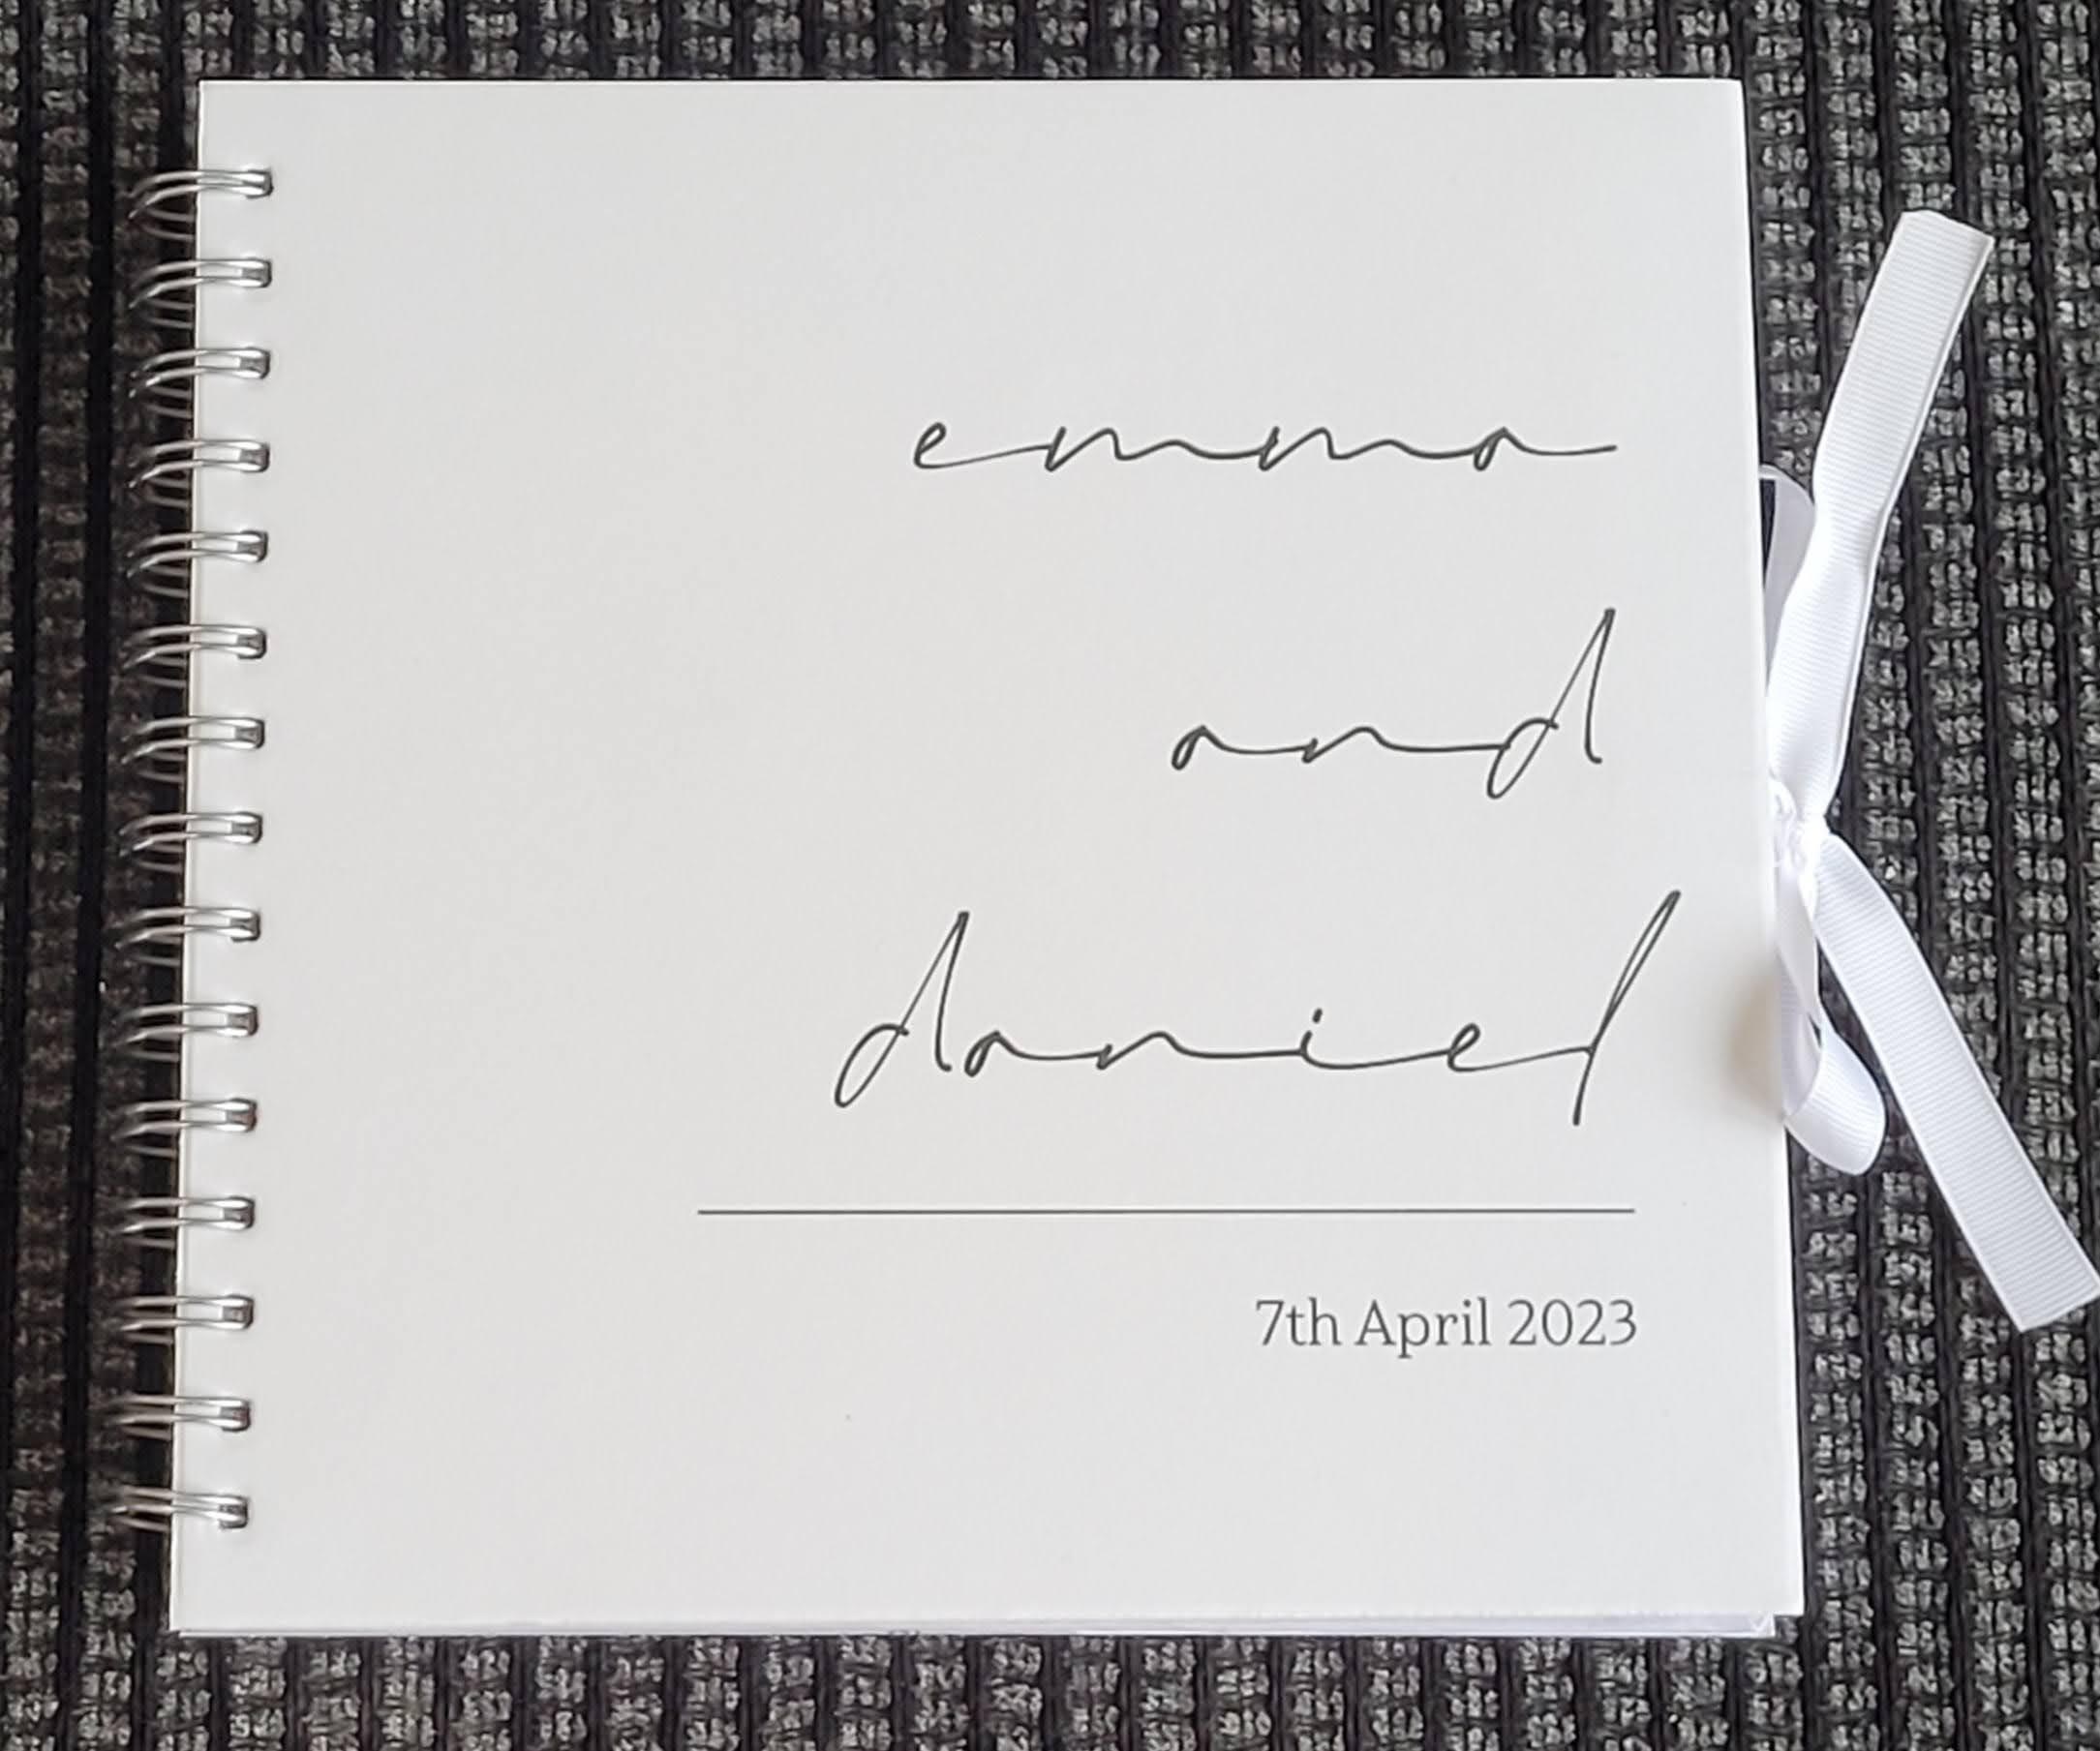 emma
and
daniel
7th April 2023